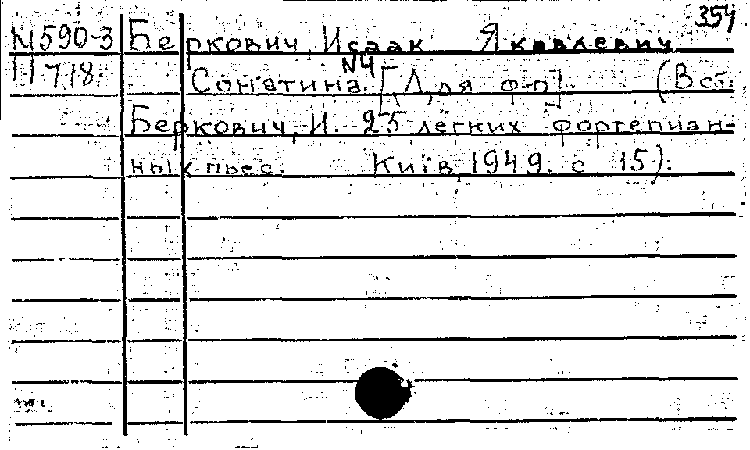 354
М590-3 Беркович, Исаак Яковлевич
П718 Сонатина №4. [Для ф-п]. (В сб.
Беркович, И. 25 легких фортепиан-
ных пьес. Київ, 1949. с 15).